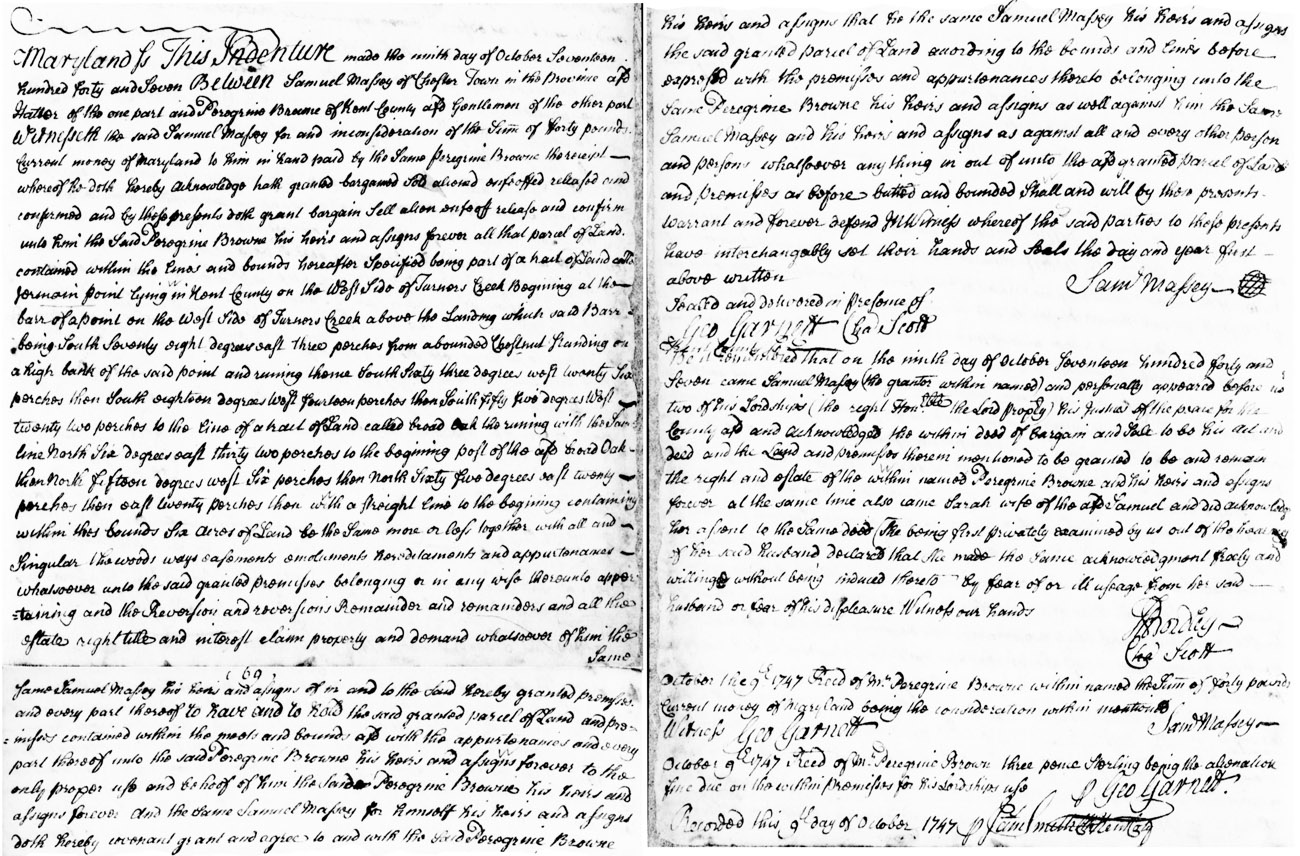 Maryland ss This Indenture made the ninth day of October Seventeen
hundred forty and Seven Between Samuel Massey of Chester Town in the Province afd
Hatter of the one part and Peregrine Browne of Kent County afd Gentlemen of the other part
Witnesseth the said Samuel Massey for and inconsideration of the Sum of forty pounds
Current money of Maryland to him in hand paid by the Same Peregrine Browne the receipt
whereof he doth hereby acknowledge hath granted bargained Sold aliened enfeoffed released and
confirmed and by these presents doth grant bargain Sell alien enfeoff release and confirm
unto him the Said Peregrine Browne his heirs and assigns forever all that parcel of Land
contained within the lines and bounds hereafter Specified being part of a tract of Land
Jermain point lying in Kent County on the West Side of Turners Creek Begining at the
barr of a point on the West Side of Turners Creek above the Landing which said Barr
being South Seventy eight degrees east three perches from a bounded Chestnut Standing on
a high bank of the said point and runing thence South Sixty three degrees west twenty Six
perches then South eighteen degrees West fourteen perches then South fifty five degrees West
twenty two perches to the line of a tract of Land called broad oak the runing with the Said
line North Six degrees east thirty two perches to the begining post of the afd broad Oak
then North fifteen degrees west Six perches then North Sixty five degrees east twenty
perches then east twenty perches then with a streight line to the begining containing
within thes bounds Six Acres of Land be the Same more or less together with all and
Singular the woods ways easements emoluments hereditaments and appurtenances
whatsoever unto the said granted premisses belonging or in any wise thereunto apper
=taining and the Reversion and reversions Remainder and remainders and all the
estate right title and interest claim property and demand whatsoever of him the
Same
169
Same Samuel Massey his heirs and assigns of in and to the said hereby granted premises
and every part thereof to have and to hold the said granted parcel of Land and pre=
=misses contained within the meets and bounds afd with the appurtenances and every
part thereof unto the said Peregrine Browne his heirs and assigns forever to the
only proper use and behoof of him the Peregrine Browne his heirs and
assigns forever And the Same Samuel Massey for himself his heirs and assigns
doth hereby covenant grant and agree to and with the said Peregrine Browne
his heirs and assigns that he the same Samuel Massey his heirs and assigns
the said granted parcel of Land according to the bounds and lines before
expressed with the premisses and appurtenances thereto belonging unto the
Same Peregrine Browne his heirs and assigns as well against him the Same
Samuel Massey and his heirs and assigns as against all and every other person
and persons whatsoever any thing in out of unto the afd granted parcel of Land
and premisses as before butted and bounded Shall and will by then presents
warrant and forever defend In Witness whereof the said parties to these presents
have interchangably set their hands and Seals the day and year first
above written
Saml Massey
Sealed and delivered in presence of
Geo Garnett Cha Scott
Be it remembered that on the ninth day of October Seventeen hundred forty and
Seven came Samuel Massey (the grantor within named) and personally appeared before
two of his Lordships (the right Hon. the Lord Propry) his Justices of the peace for the
County afd and acknowledged the within deed of bargain and Sale to be his act and
deed and the Land and premisses therein mentioned to be granted to be and remain
the right and estate of the within named Peregrine Browne and his heirs and assigns
forever at the same time also came Sarah wife of the afd Samuel and did acknowledge
her assent to the Same deed (She being first privately examined by us out of the hearing
of her said husband declared that She made the Same acknowledgment freely and
willinge without being induced thereto by fear of or ill useage from her said
husband or fear of his displeasure Witness our hands
Bordley
Cha Scott
October the 9th 1747 Recd of Mr. Peregrine Browne within named the Sum of forty pounds
Current money of Maryland being the consideration within mentiond
Saml Massey
Witness Geo Garnett
October 9th 1747 Recd of Mr. Peregrine Brown three pence Sterling being the alienation
fine due on the within premisses for his Lordships use
p Geo Garnett.
Recorded this 9th day of October 1747 p